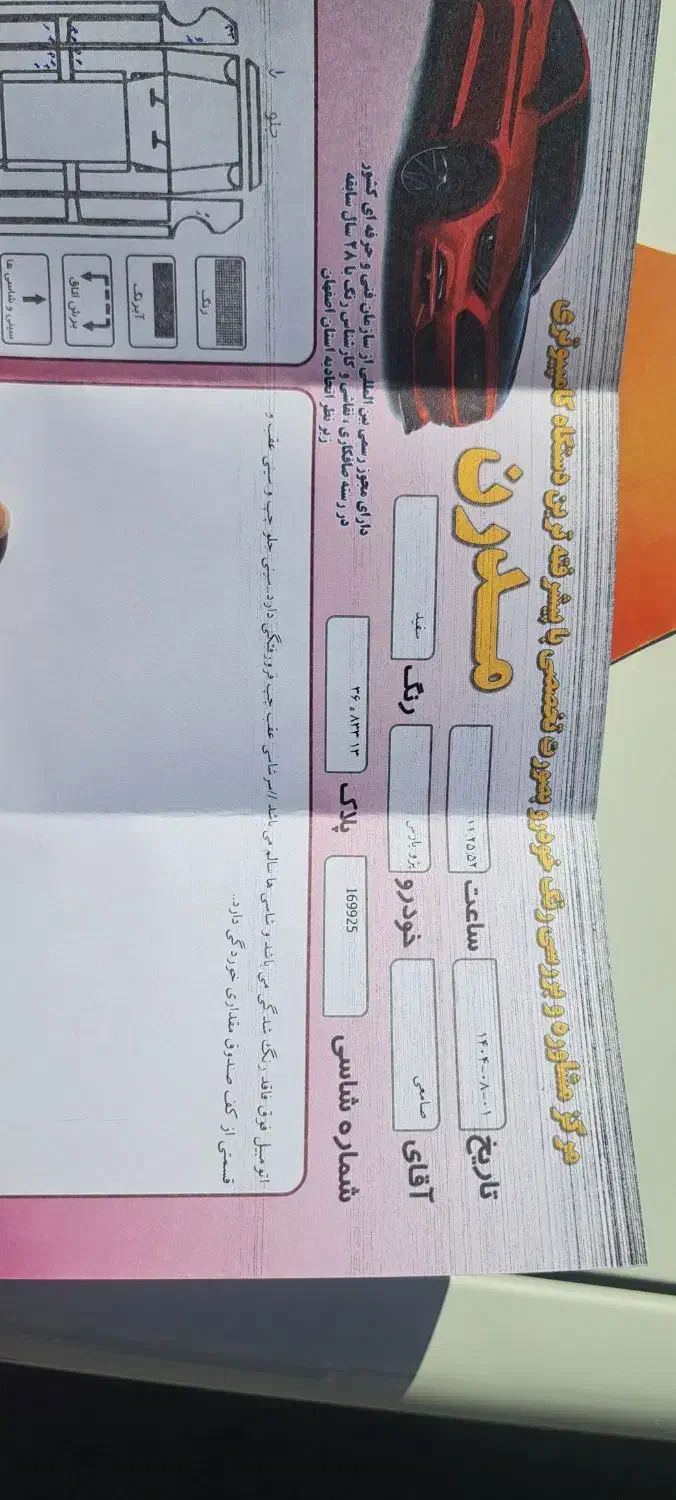 مرکز مشاوره و بررسی رنگ خودرو بصورت تخصصی با پیشرفته ترین دستگاه کامپیوتری
مـدرن
تاریخ ۱۴۰۴-۰۸-۰۱
ساعت ۱۱:۲۵:۵۲
آقای صامعی
خودرو پژو پارس
رنگ سفید
شماره شاسی 169925
پلاک ۳۶ ه ۸۳۳ ۱۳
دارای مجوز رسمی بین المللی از سازمان فنی و حرفه ای کشور
در رسته صافکاری ، نقاشی و کارشناس رنگ با ۲۸ سال سابقه
زیر نظر اتحادیه استان اصفهان
اتومبیل فوق فاقد رنگ شدگی می باشد و شاسی ها سالم می باشد //سرشاسی عقب چپ فرورفتگی دارد..سینی جلو چپ و سینی عقب و
قسمتی از کف صندوق مقداری خوردگی دارد..
جلو
رنگ
آبرنگ
برش اتاق
سینی و شاسی ها